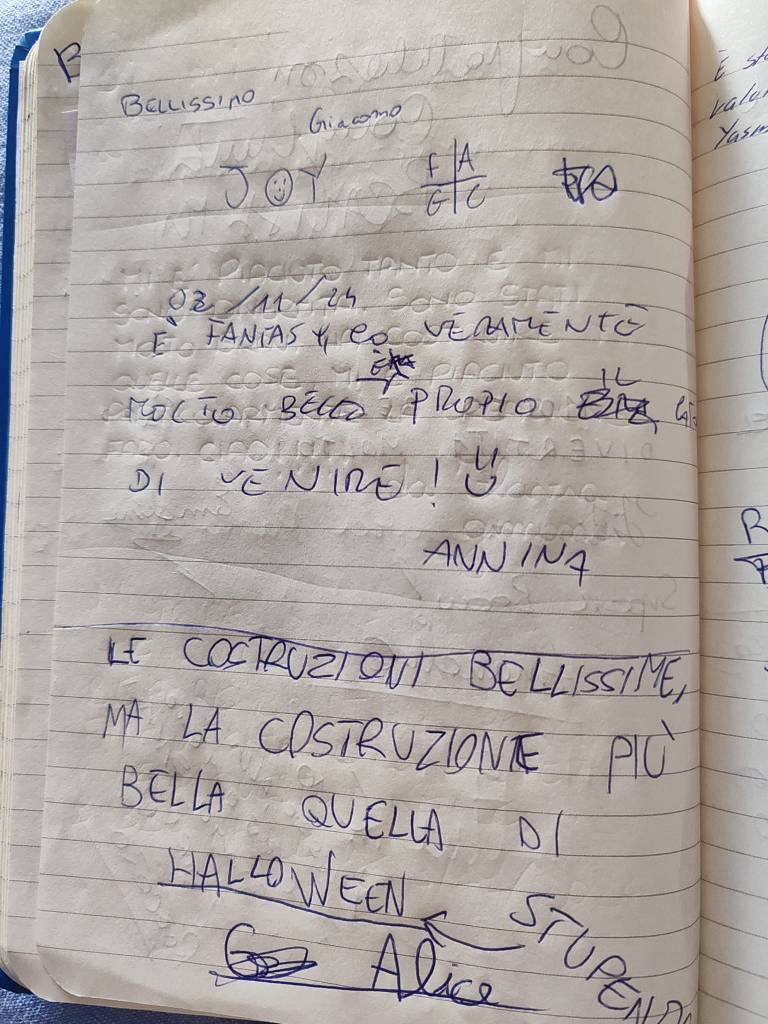 BELLISSIMO
Giacomo
JOY
F A
G C
02/11/24
È FANTASTICO VERAMENTE
MOLTO BELLO PROPIO IL
DI VENIRE!
ANNINA
LE COSTRUZIONI BELLISSIME,
MA LA COSTRUZIONE PIÙ
BELLA QUELLA DI
HALLOWEEN
STUPENDA
Alice
È
valu
Yasm